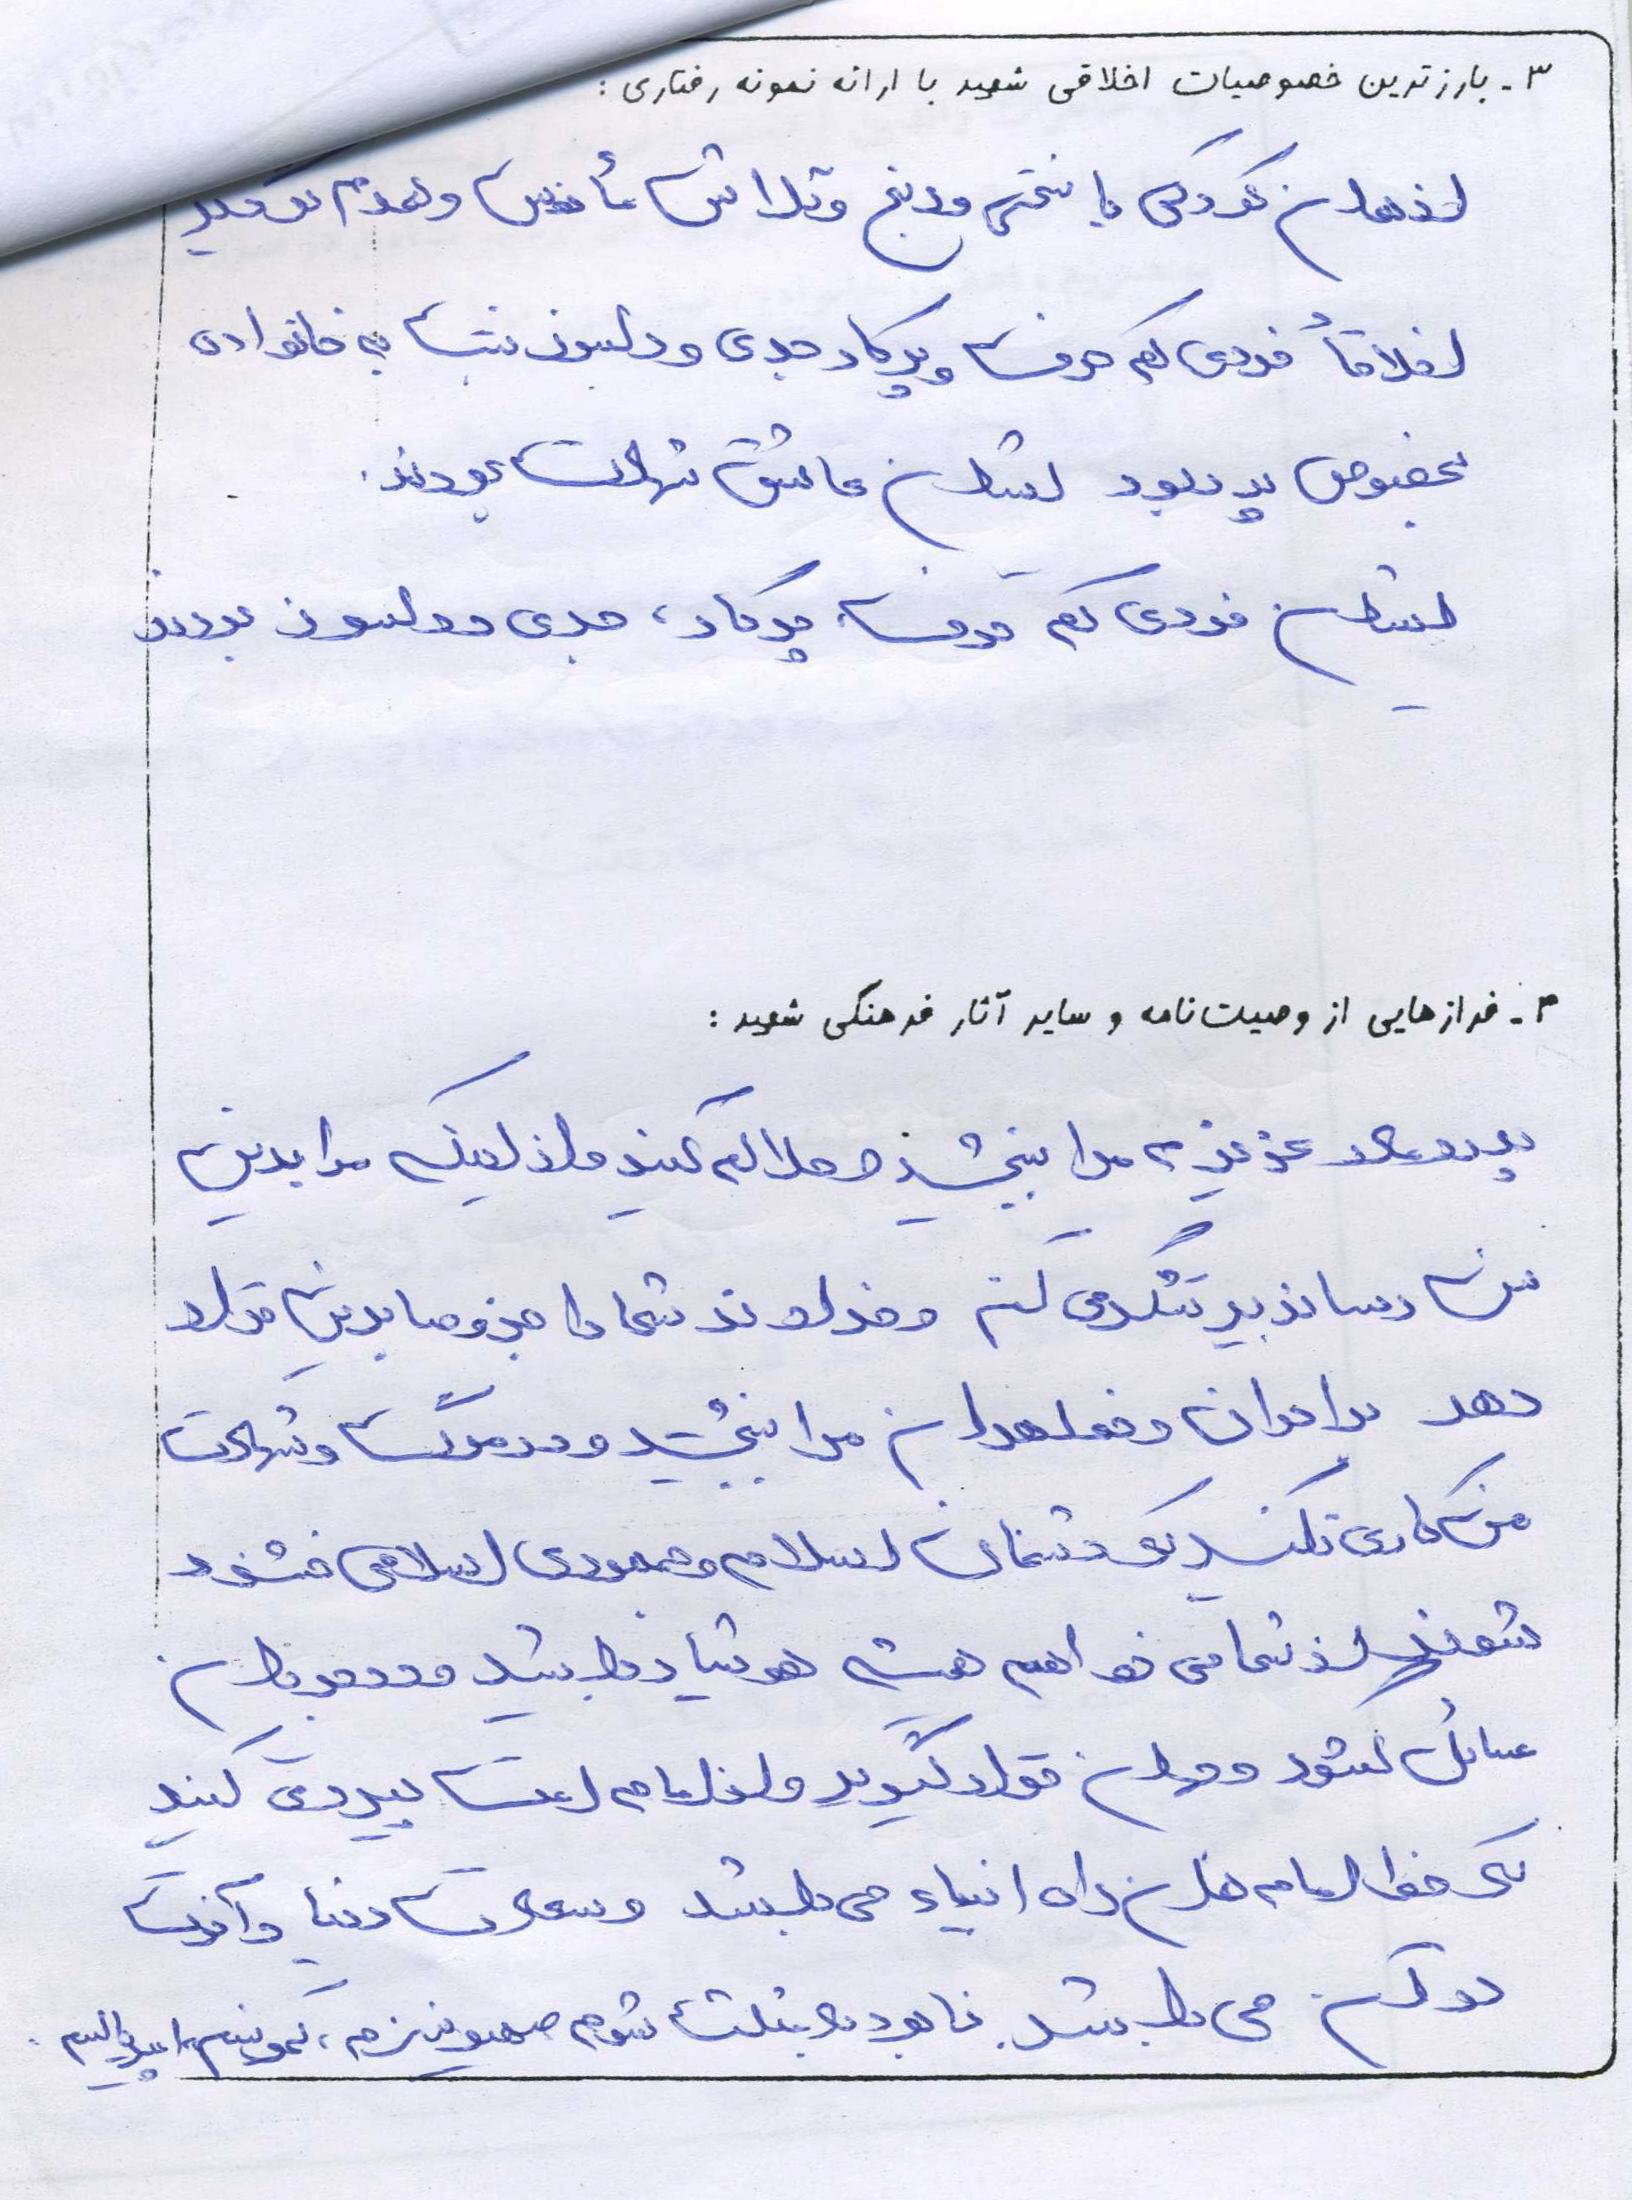 ۳ـ بارزترین خصوصیات اخلاقی شهید با ارائه نمونه رفتاری:
از همان کودکی با سختی ورنج وتلاش مأنوس وهمدم بوده
اخلاقاً فردی کم حرف و پرکار جدی و دلسوز نسبت به خانواده
بخصوص پدر بود ایشان عاشق شهادت بودند.
ایشان فردی کم حرف، پرکار، جدی و دلسوز بودند
۴ـ فرازهایی از وصیت‌نامه و سایر آثار فرهنگی شهید:
پدر و مادر عزیزم مرا ببخشید و حلالم کنید و از اینکه مرا بدین
سن رسانیدید تشکر می کنم و خداوند شما را جزو صابرین قرار
دهد برادران و خواهران مرا ببخشید و در مرگ و شهادت
من کاری نکنید که دشمنان اسلام و جمهوری اسلامی خشنود
شوند از شما می خواهم همیشه هوشیار باشید و در جریان
مسائل کشور و جهان قرار گیرید و از امام امت پیروی کنید
که خط امام همان راه انبیاء می باشد و سعادت دنیا و آخرت
در آن می باشد. نابود باد مثلث شوم صهیونیزم، کمونیسم، امپریالیسم.